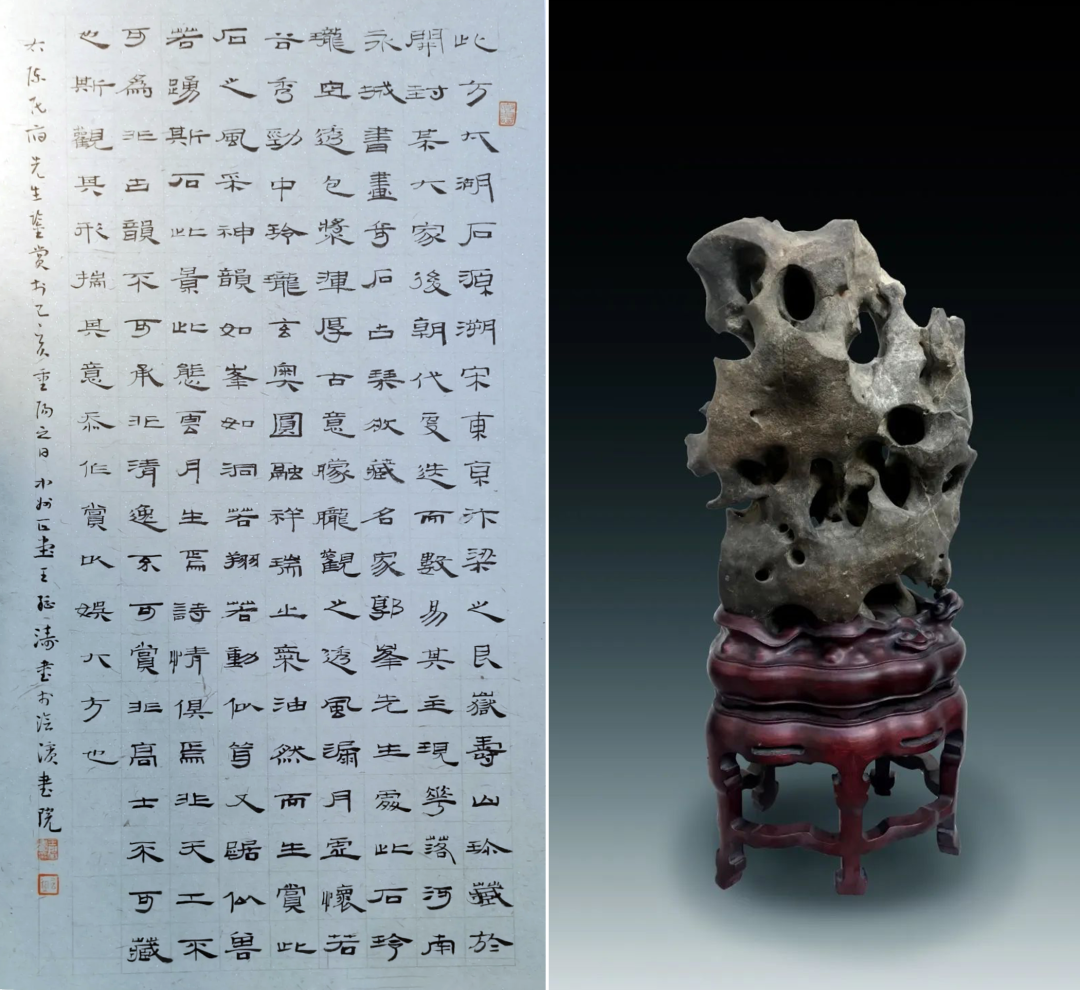 此方太湖石源溯宋東京汴梁之艮嶽壽山珎藏於
開封某大家後朝代更迭而數易其主現華落河南
永城書畫奇石古琴收藏名家郭峯先生處此石玲
瓏空透包漿渾厚古意朦朧觀之透風漏月虛懷若
谷秀勁中玲瓏玄奧圓融祥瑞止氣油然而生賞此
石之風采神韻如峯如洞若翔若動似又踞似兽
若踴斯石此景此態雲月生焉詩情俱焉非天工不
可爲非古韻不可承非清逸不可賞非高士不可藏
也斯觀其形揣其意忝作賞以娛大方也
右陈先生鉴賞於己亥重陽之日王濤書於濱書院